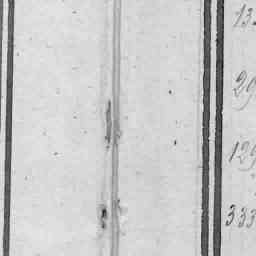 13
29
129
333